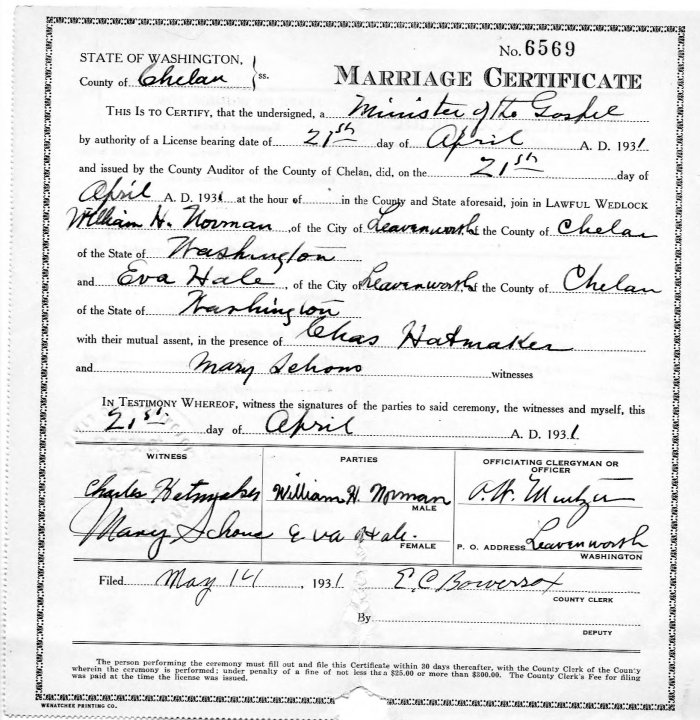 No. 6569
STATE OF WASHINGTON,
County of Chelan ss.
MARRIAGE CERTIFICATE
THIS IS TO CERTIFY, that the undersigned, a Minister of the Gospel
by authority of a License bearing date of 21st day of April A. D. 1931
and issued by the County Auditor of the County of Chelan, did, on the 21st day of
April A. D. 1931 at the hour of in the County and State aforesaid, join in LAWFUL WEDLOCK
William H. Norman, of the City of Leavenworth, of the County of Chelan
of the State of Washington
and Eva Hale, of the City of Leavenworth, of the County of Chelan
of the State of Washington
with their mutual assent, in the presence of Chas Hatmaker
and Mary Schons witnesses
IN TESTIMONY WHEREOF, witness the signatures of the parties to said ceremony, the witnesses and myself, this
21st. day of April A. D. 1931
WITNESS
Charles Hatmaker
Mary Schons
PARTIES
William H. Norman
MALE
Eva Hale.
FEMALE
OFFICIATING CLERGYMAN OR
OFFICER
P. O. ADDRESS Leavenworth
WASHINGTON
Filed May 14, 1931 E. C. Bowersox
COUNTY CLERK
By
DEPUTY
The person performing the ceremony must fill out and file this Certificate within 30 days thereafter, with the County Clerk of the County
wherein the ceremony is performed; under penalty of a fine of not less than $25.00 or more than $300.00. The County Clerk's Fee for filing
was paid at the time the license was issued.
WENATCHEE PRINTING CO.